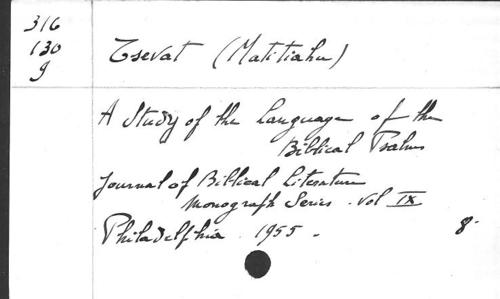 316
130
g
Tsevat (Matitiahu)
A Study of the Language of the
Biblical Psalms
Journal of Biblical Literature
Monograph Series. Vol IX
Philadelphia. 1955.
8º